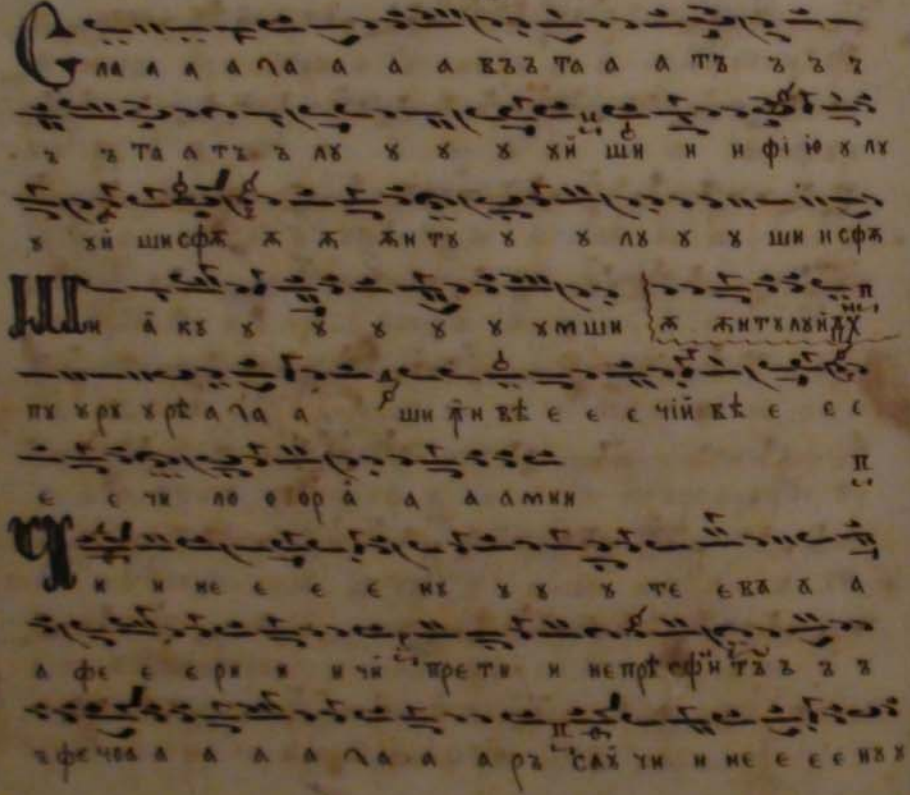 Сла а а а ла а а а въъ та а а тъ ъ ъ ъ
ъ ъ та а тъ ъ лꙋ ꙋ ꙋ ꙋ ꙋй ши и и фі ю ꙋ лꙋ
ꙋ ꙋй ши сфѫ ѫ ѫ ѫн тꙋ ꙋ ꙋ лꙋ ꙋ ꙋ ши и сфѫ
Ши а кꙋ ꙋ ꙋ ꙋ ꙋ ꙋ ꙋм ши ѫ ѫн тꙋ лꙋй дꙋх
пꙋ ꙋрꙋ ꙋрѣ а ла а ши ꙟн вѣ є є є чій вѣ є є є
є є чи ло о ор а а а а мин
Чи и не є є є нꙋ ꙋ ꙋ ꙋ те є ва а а
а фе є є ри и и чй пре ти и не прѣ є фй тъ ъ ъ ъ
ъ фе чоа а а а а ла а а ръ саꙋ чи и не є є є нꙋ ꙋ